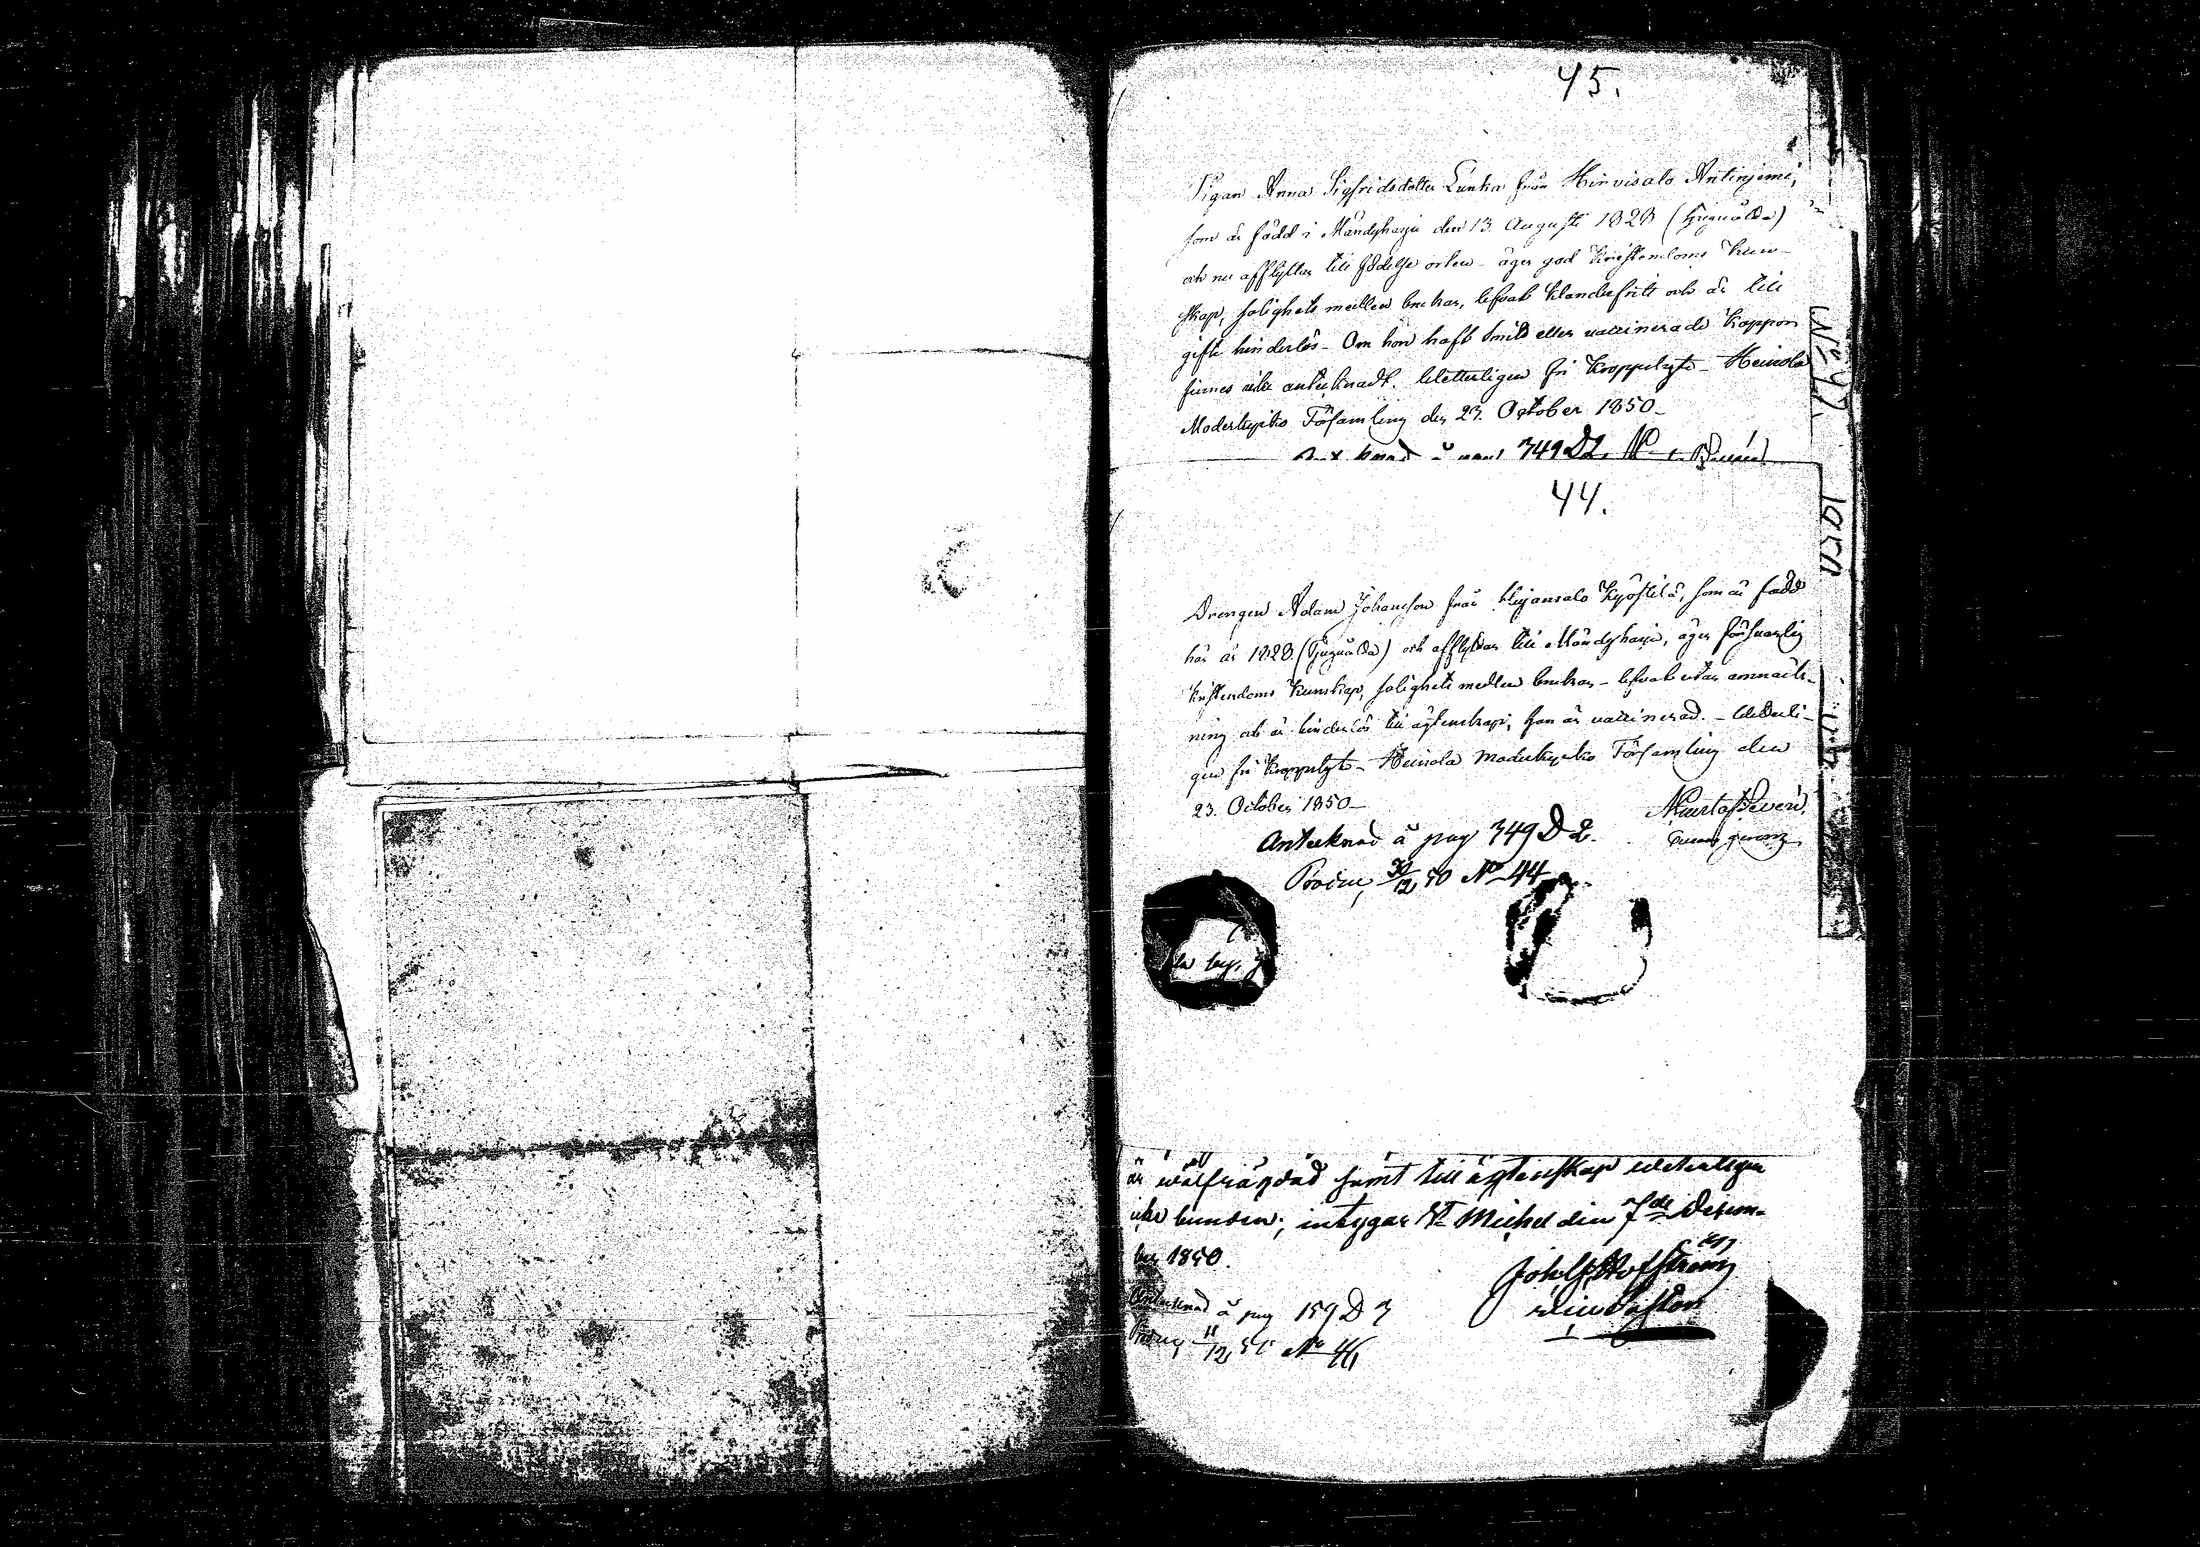 45.
Pigan Anna Sigfridsdotter Lunka från Hirvisalo Anttinjemi,
som är född i Mändyharju den 13 Augusti 1828 (tjuguåtta)
och nu afflyttar till födelse orten - äger god Kristendoms kun-
skap, salighets medlen brukar, lefvat klanderfritt och är till
gifte hinderlös - Om hon haft smitt eller vaccinerade koppor
finnes icke antecknadt. Vetterligen fri kroppslyte - Heinola
Moderkyrko Församling den 23. October 1850 -
349 D2.
No 47.
44.
Drengen Adam Johansson från Kyöstilä, som är född
här år 1828 (tjuguåtta) och afflyttar till Mändyharju, äger försvarlig
kristendoms kunskap, salighets medlen brukar - lefvat utan anmärk-
ning och är hinderlös till äktenskap; han är vaccinerad. - Vetterli-
gen fri kroppslyte - Heinola Moderkyrko Församling den
23. October 1850 -
Antecknad å pag 349 D 2.
12 50 No 44
är wälfrägdad samt till äktenskap veterligen
icke bunden; intygar St Michel den 7de Decem-
ber 1850.
Antecknad å pag 159 D 3
12 No 46